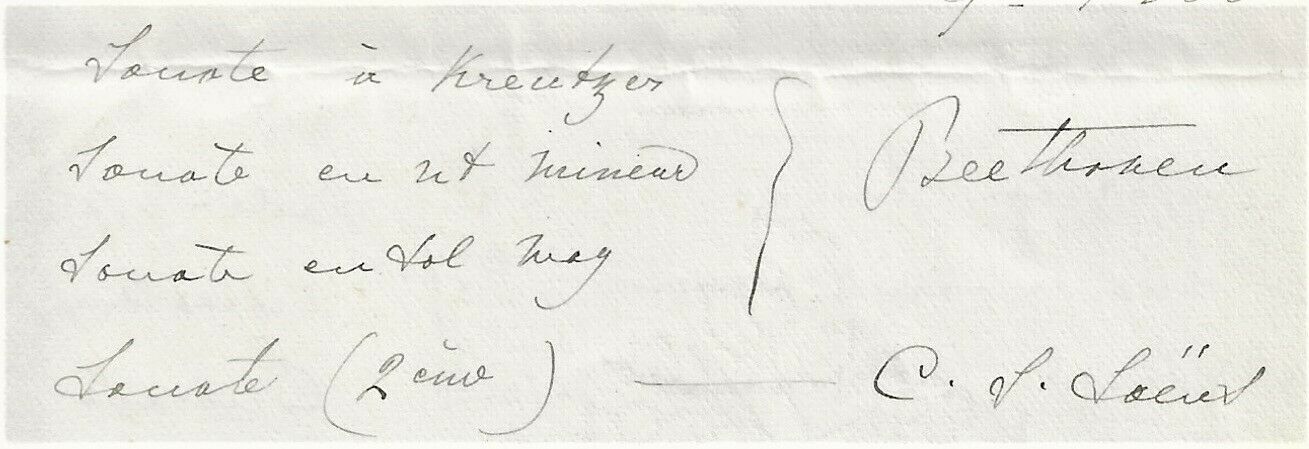 Sonate à Kreutzer
Sonate en ut mineur } Beethoven
Sonate en sol maj
Sonate (2ème) — C. S. Saëns